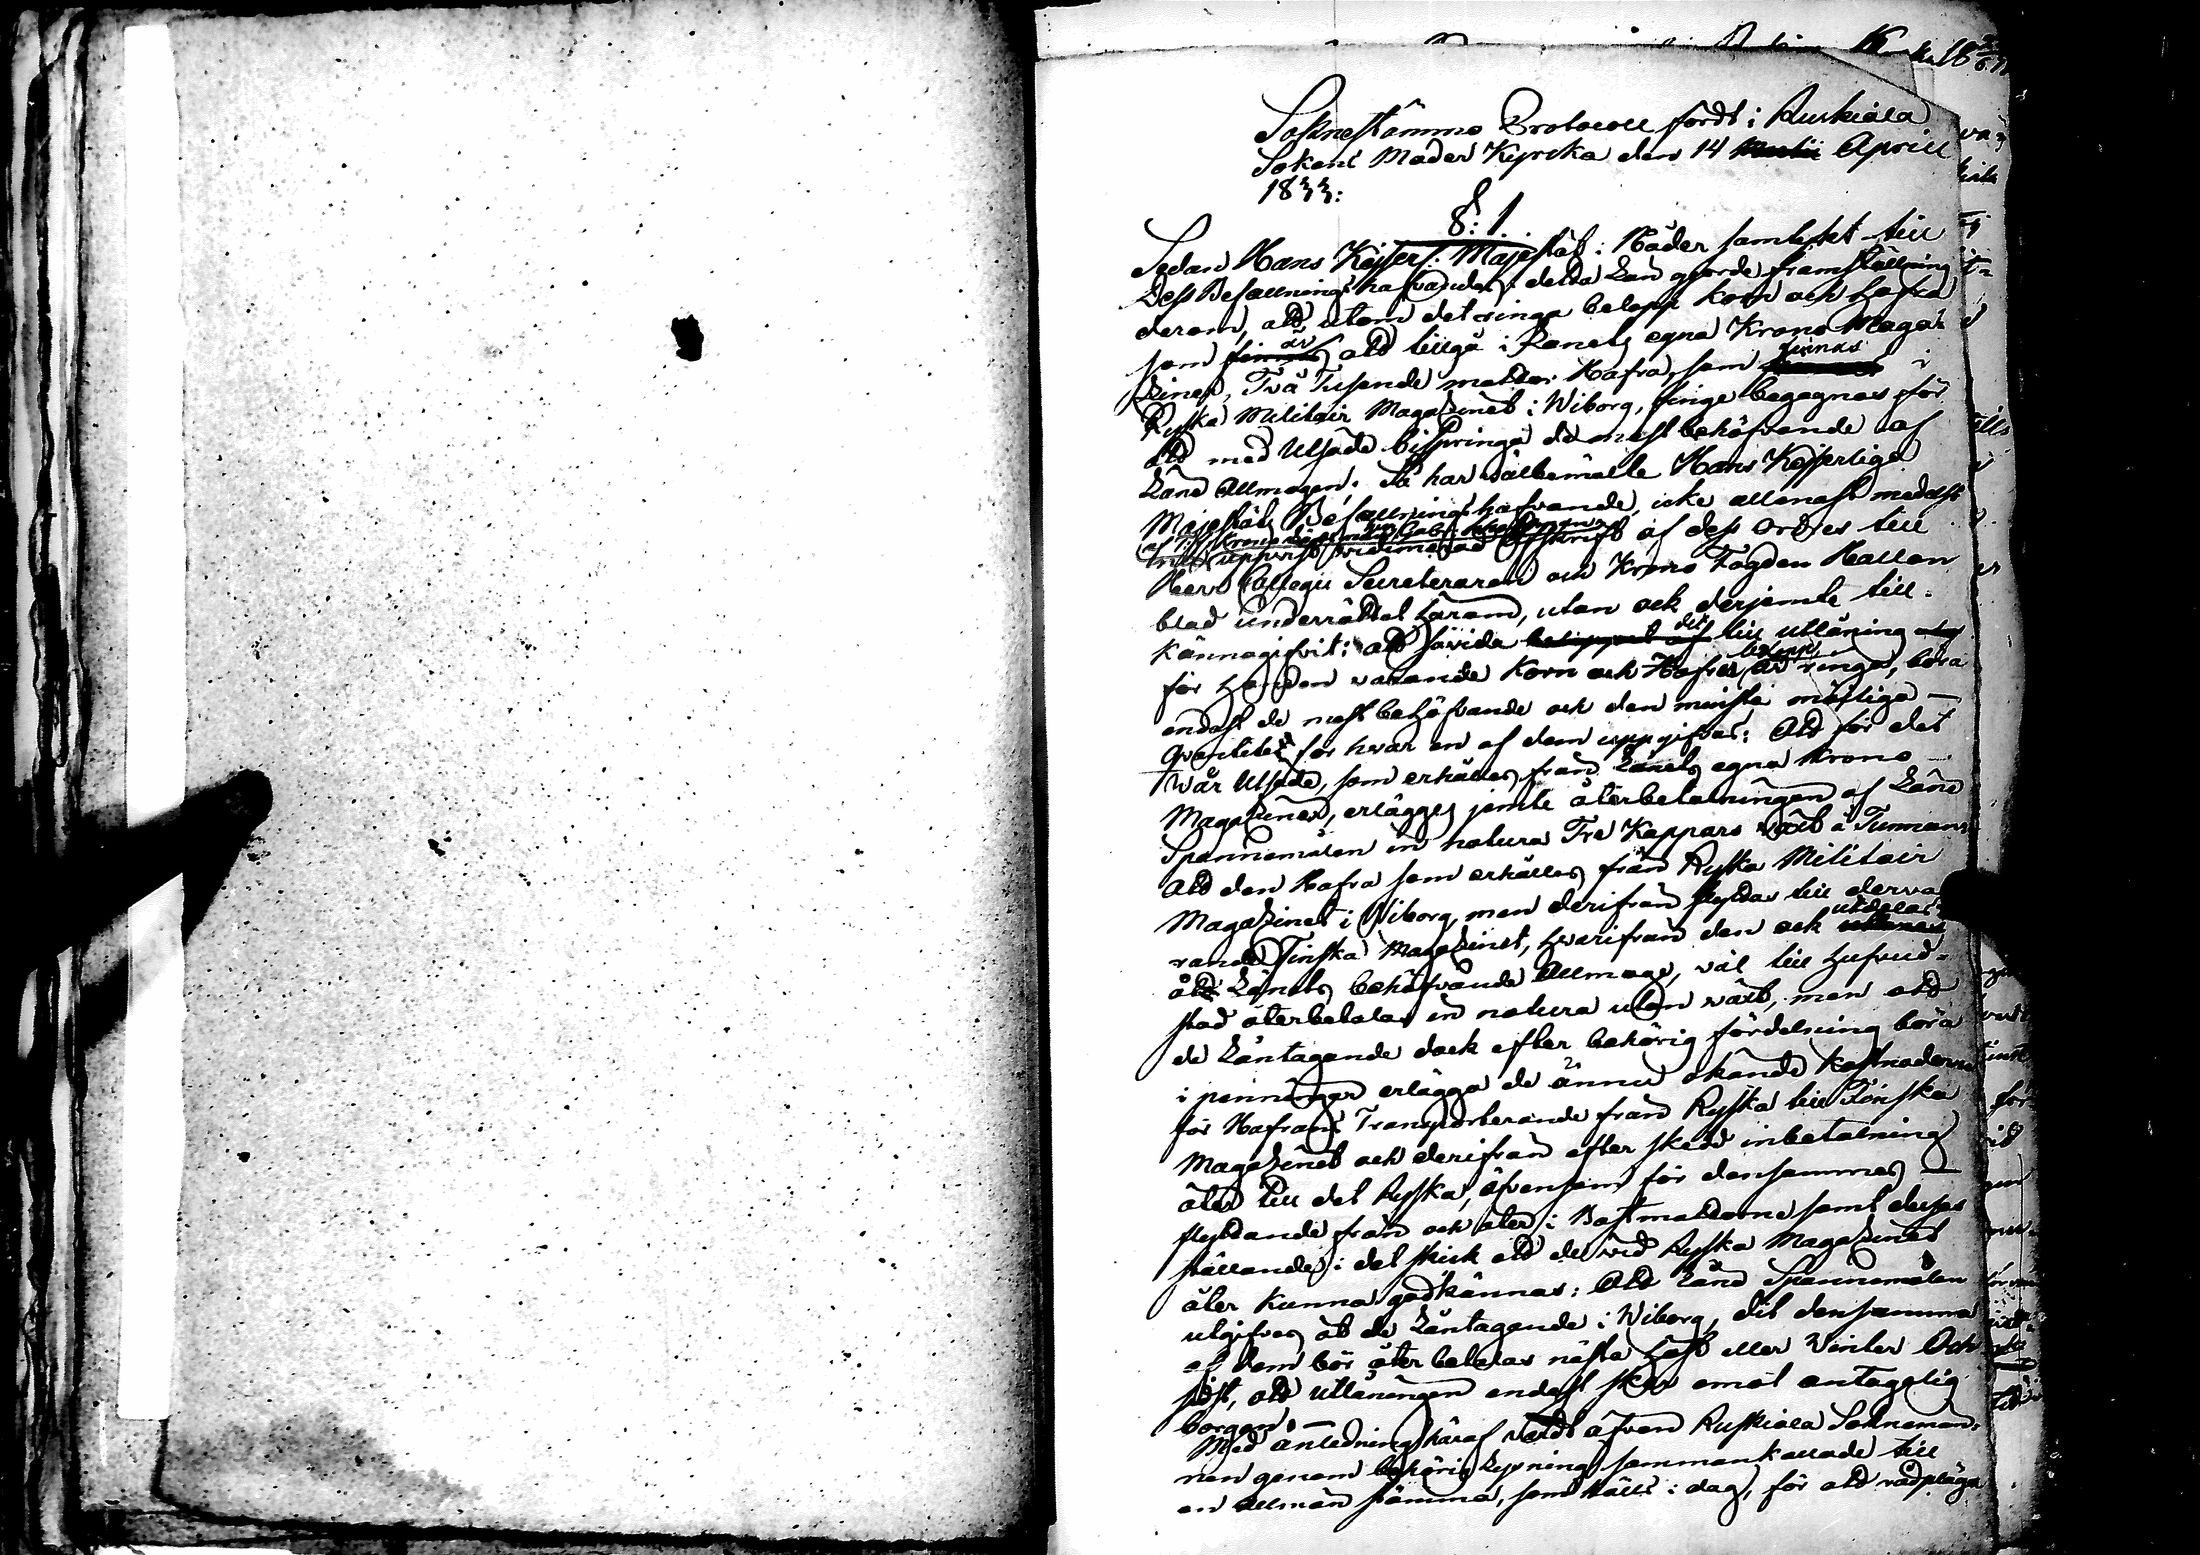 Soknestämmo Protocoll fördt i Ruskiala
Sokens Moder Kyrcka den 14 Martii Aprill
1833:
§: 1
Sedan Hans Kejserl. Majestät i Nåder samtyckt till
Dess Befallningshafvandes i detta Län gjorde framställning
derom, att utom det ringa belopp Korn och Hafra
som finnes är att tillgå i Länets egna Krono Maga-
ziner, Två Tusende mattor Hafra, som finnas i
Ryska Militair Magazinet i Wiborg, finge begagnas för
att med Utsäde bispringa de mest behöfvande af
Läns Allmogen; Så har välbemälte Hans Kejserlige
Majestäts Befallningshafvande, icke allenast medelst
vidimerad afskrift af dess Ordres till
Herr Collegii Secreteraren och Krono Fogden Hallon
blad underrättat härom, utan ock derjemte till-
kännagifvit: att såvida beloppet af det till utlåning
för handen varande Korn och Hafra belopp är ringa, böra
endast de mest behöfvande och den minsta möjliga
Qvantitet för hvar en af dem uppgifvas: Att för det
Wår Utsäde, som erhålles från Länets egna Krono
Magaziner, erlägges jemte återbetalningen af Låne
Spannemålen in natura Tre Kappars växt å Tunnan:
Att den Hafra som erhålles från Ryska Militair
Magazinet i Wiborg, men derifrån flyttas till derva
rande Finska Magazinet, hvarifrån den ock utdelas
åt Länets behöfvande Allmoge, väl till hufvud-
stad återbetalas in natura utan växt, men att
de Låntagande dock efter behörig fördelning böra
i penningar erlägga de ännu okände Kostnaderna
för Hafrans Transporterande från Ryska till Finska
Magazinet och derifrån efter skedd inbetalning
åter till det Ryska, äfvensom för densammas
flyttande från och åter i Bastmattorne samt desses
ställande i det skick att de vid Ryska Magazinet
åter kunna godkännas: Att Låne Spannemålen
utgifves åt de Låntagande i Wiborg, dit densamma
af dem bör återbetalas nästa Höst eller Vinter Och
sidst, att utlåningen endast sker emot antagelig
borgen.
Med anledning häraf vardt äfven Ruskiala Sokneman-
nen genom behörig Lysning sammankallade till
en allmän stämma, som hålls i dag, för att rådpläga